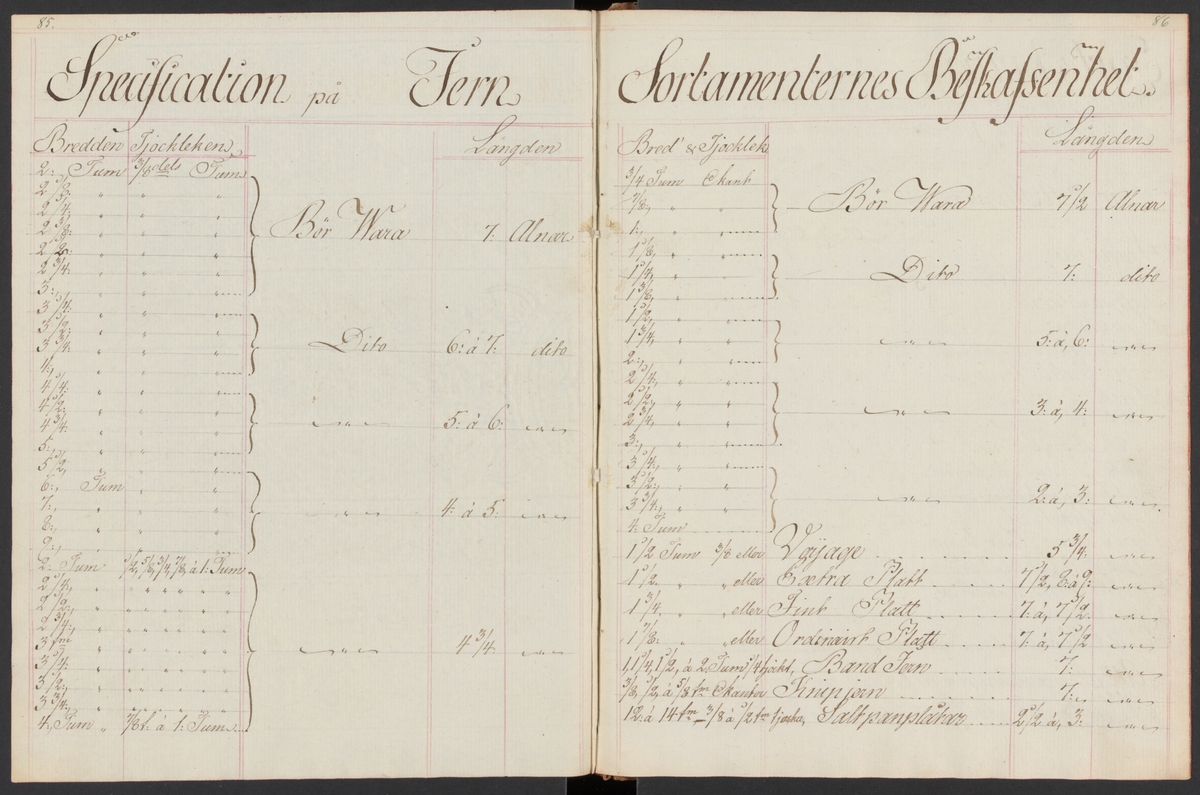 85.
Specification på Jern
Bredden Tjockleken Längden
2: Tum 3/8 dels Tum
2 1/4: " " "
2 3/4: " " "
3:, " " "
Bör Wara 7: Alnar
3 1/4: " " "
3 1/2: " " "
3 3/4: " " "
4:, " " "
Dito 6: á 7: dito
4 1/4: " " "
4 1/2: " " "
4 3/4: " " "
5:, " " "
5: á 6:
5 1/2, " " "
6:, Tum " "
7:, " " "
8:, " " "
9:,
4: á 5:
2: Tum 1/2, 5/8, 3/4, 7/8, á 1: Tum
2 1/4:,
2 1/2:,
2 3/4:,
3 tm
3 1/4:
3 1/2:,
3 3/4:
4:, Tum " 7/8 t: á 1: Tum
4 3/4
86
Sortamenternes Beskaffsenhet.
Bred' & Tjocklek Längden
3/4 Tum Ckant
7/8, "
1:, "
Bör Wara 7 1/2 Alnar
1 1/8, "
1 1/4, "
1 3/8, "
Dito 7: dito
1 1/2, "
1 3/4, "
2:, "
5: á, 6:
2 1/4, "
2 1/2, "
2 3/4, "
3:, "
3: á, 4:
3 1/4, "
3 1/2, "
3 3/4, "
4: Tum
2: á, 3:
1 1/2 Tum 3/8 eller Vojage 5 3/4
1 1/2, " eller Extra Platt 7 1/2, 8: á 9:
1 3/4, " eller Fint Platt 7: á, 7 1/2
1 7/8: " eller Ordinairt Platt 7: á, 7 1/2
1, 1 1/4, 1 1/2, á 2, Tum 1/4 tjockt, Band Jern 7:
3/8, 1/2, á 5/8 tm Ckantor 7:
12: á 14 tm 3/8 á 1/2 tm tjocka, Saltpanplåtar 2 1/2 á, 3: